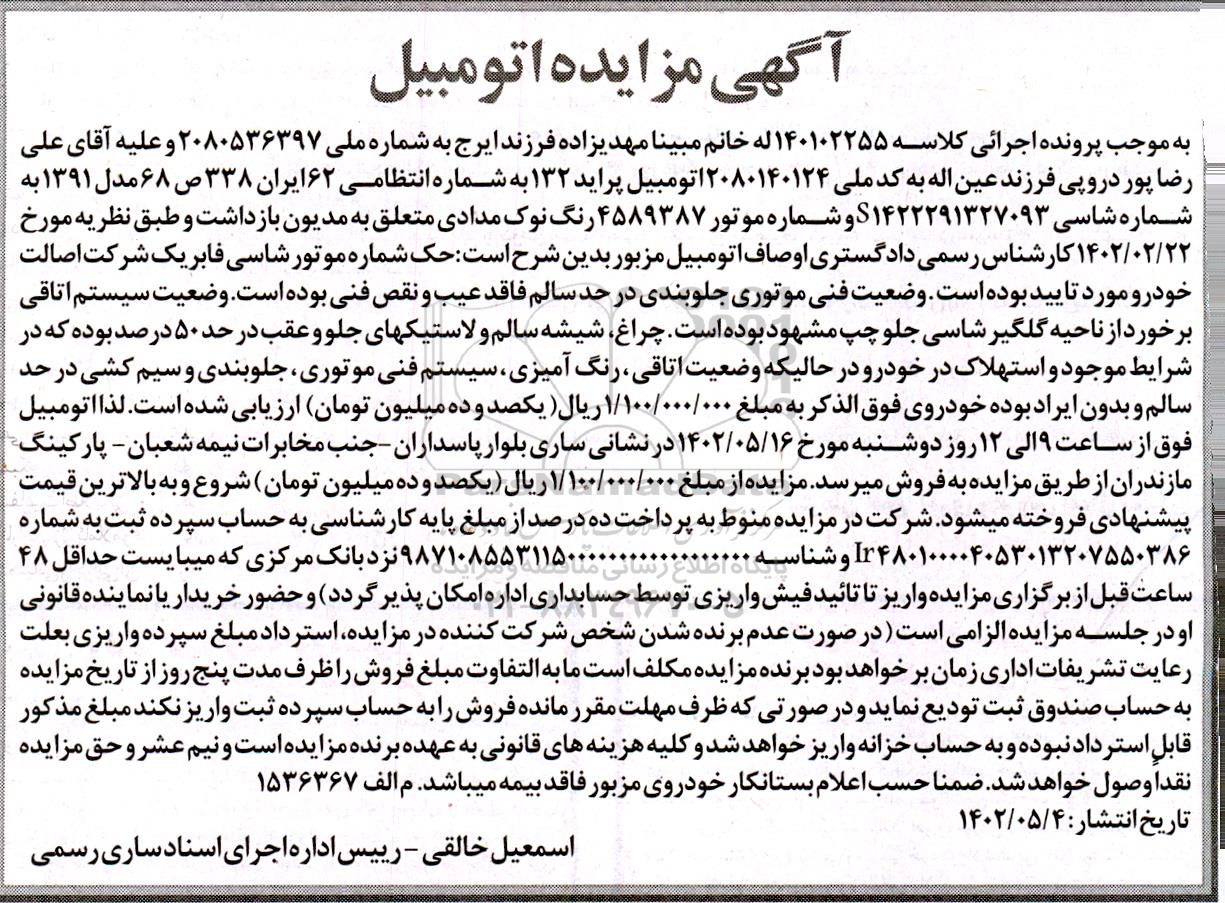 آگهی مزایده اتومبیل
به موجب پرونده اجرائی کلاسه ۱۴۰۱۰۲۲۵۵ له خانم مبینا مهدیزاده فرزند ایرج به شماره ملی ۲۰۸۰۵۳۶۳۹۷ و علیه آقای علی
رضا پور دروپی فرزند عین اله به کد ملی ۲۰۸۰۱۴۰۱۲۴ اتومبیل پراید ۱۳۲ به شماره انتظامی ۶۲ ایران ۳۳۸ ص ۶۸ مدل ۱۳۹۱ به
شماره شاسی S۱۴۲۲۲۹۱۳۲۷۰۹۳ و شماره موتور ۴۵۸۹۳۸۷ رنگ نوک مدادی متعلق به مدیون بازداشت و طبق نظریه مورخ
۱۴۰۲/۰۲/۲۲ کارشناس رسمی دادگستری اوصاف اتومبیل مزبور بدین شرح است: حک شماره موتور شاسی فابریک شرکت اصالت
خودرو مورد تایید بوده است. وضعیت فنی موتوری جلوبندی در حد سالم فاقد عیب و نقص فنی بوده است. وضعیت سیستم اتاقی
برخورد از ناحیه گلگیر شاسی جلو چپ مشهود بوده است. چراغ، شیشه سالم و لاستیکهای جلو و عقب در حد ۵۰ درصد بوده که در
شرایط موجود و استهلاک در خودرو در حالیکه وضعیت اتاقی، رنگ آمیزی، سیستم فنی موتوری، جلوبندی و سیم کشی در حد
سالم و بدون ایراد بوده خودروی فوق الذکر به مبلغ ۱/۱۰۰/۰۰۰/۰۰۰ ریال( یکصد و ده میلیون تومان) ارزیابی شده است. لذا اتومبیل
فوق از ساعت ۹ الی ۱۲ روز دوشنبه مورخ ۱۴۰۲/۰۵/۱۶ در نشانی ساری بلوار پاسداران -جنب مخابرات نیمه شعبان- پارکینگ
مازندران از طریق مزایده به فروش میرسد. مزایده از مبلغ ۱/۱۰۰/۰۰۰/۰۰۰ ریال (یکصد و ده میلیون تومان) شروع و به بالاترین قیمت
پیشنهادی فروخته میشود. شرکت در مزایده منوط به پرداخت ده درصد از مبلغ پایه کارشناسی به حساب سپرده ثبت به شماره
Ir۴۸۰۱۰۰۰۰۴۰۵۳۰۱۳۲۰۷۵۵۰۳۸۶ و شناسه ۹۸۷۱۰۸۵۵۳۱۱۵۰۰۰۰۰۰۰۰۰۰۰۰۰۰۰۰۰ نزد بانک مرکزی که میبایست حداقل ۴۸
ساعت قبل از برگزاری مزایده واریز تا تائید فیش واریزی توسط حسابداری اداره امکان پذیر گردد) و حضور خریدار یا نماینده قانونی
او در جلسه مزایده الزامی است( در صورت عدم برنده شدن شخص شرکت کننده در مزایده، استرداد مبلغ سپرده واریزی بعلت
رعایت تشریفات اداری زمان بر خواهد بود برنده مزایده مکلف است مابه التفاوت مبلغ فروش را ظرف مدت پنج روز از تاریخ مزایده
به حساب صندوق ثبت تودیع نماید و در صورتی که ظرف مهلت مقرر مانده فروش را به حساب سپرده ثبت واریز نکند مبلغ مذکور
قابل استرداد نبوده و به حساب خزانه واریز خواهد شد و کلیه هزینه های قانونی به عهده برنده مزایده است و نیم عشر و حق مزایده
نقداً وصول خواهد شد. ضمنا حسب اعلام بستانکار خودروی مزبور فاقد بیمه میباشد. م الف ۱۵۳۶۳۶۷
تاریخ انتشار: ۱۴۰۲/۰۵/۴
اسمعیل خالقی - رییس اداره اجرای اسناد ساری رسمی